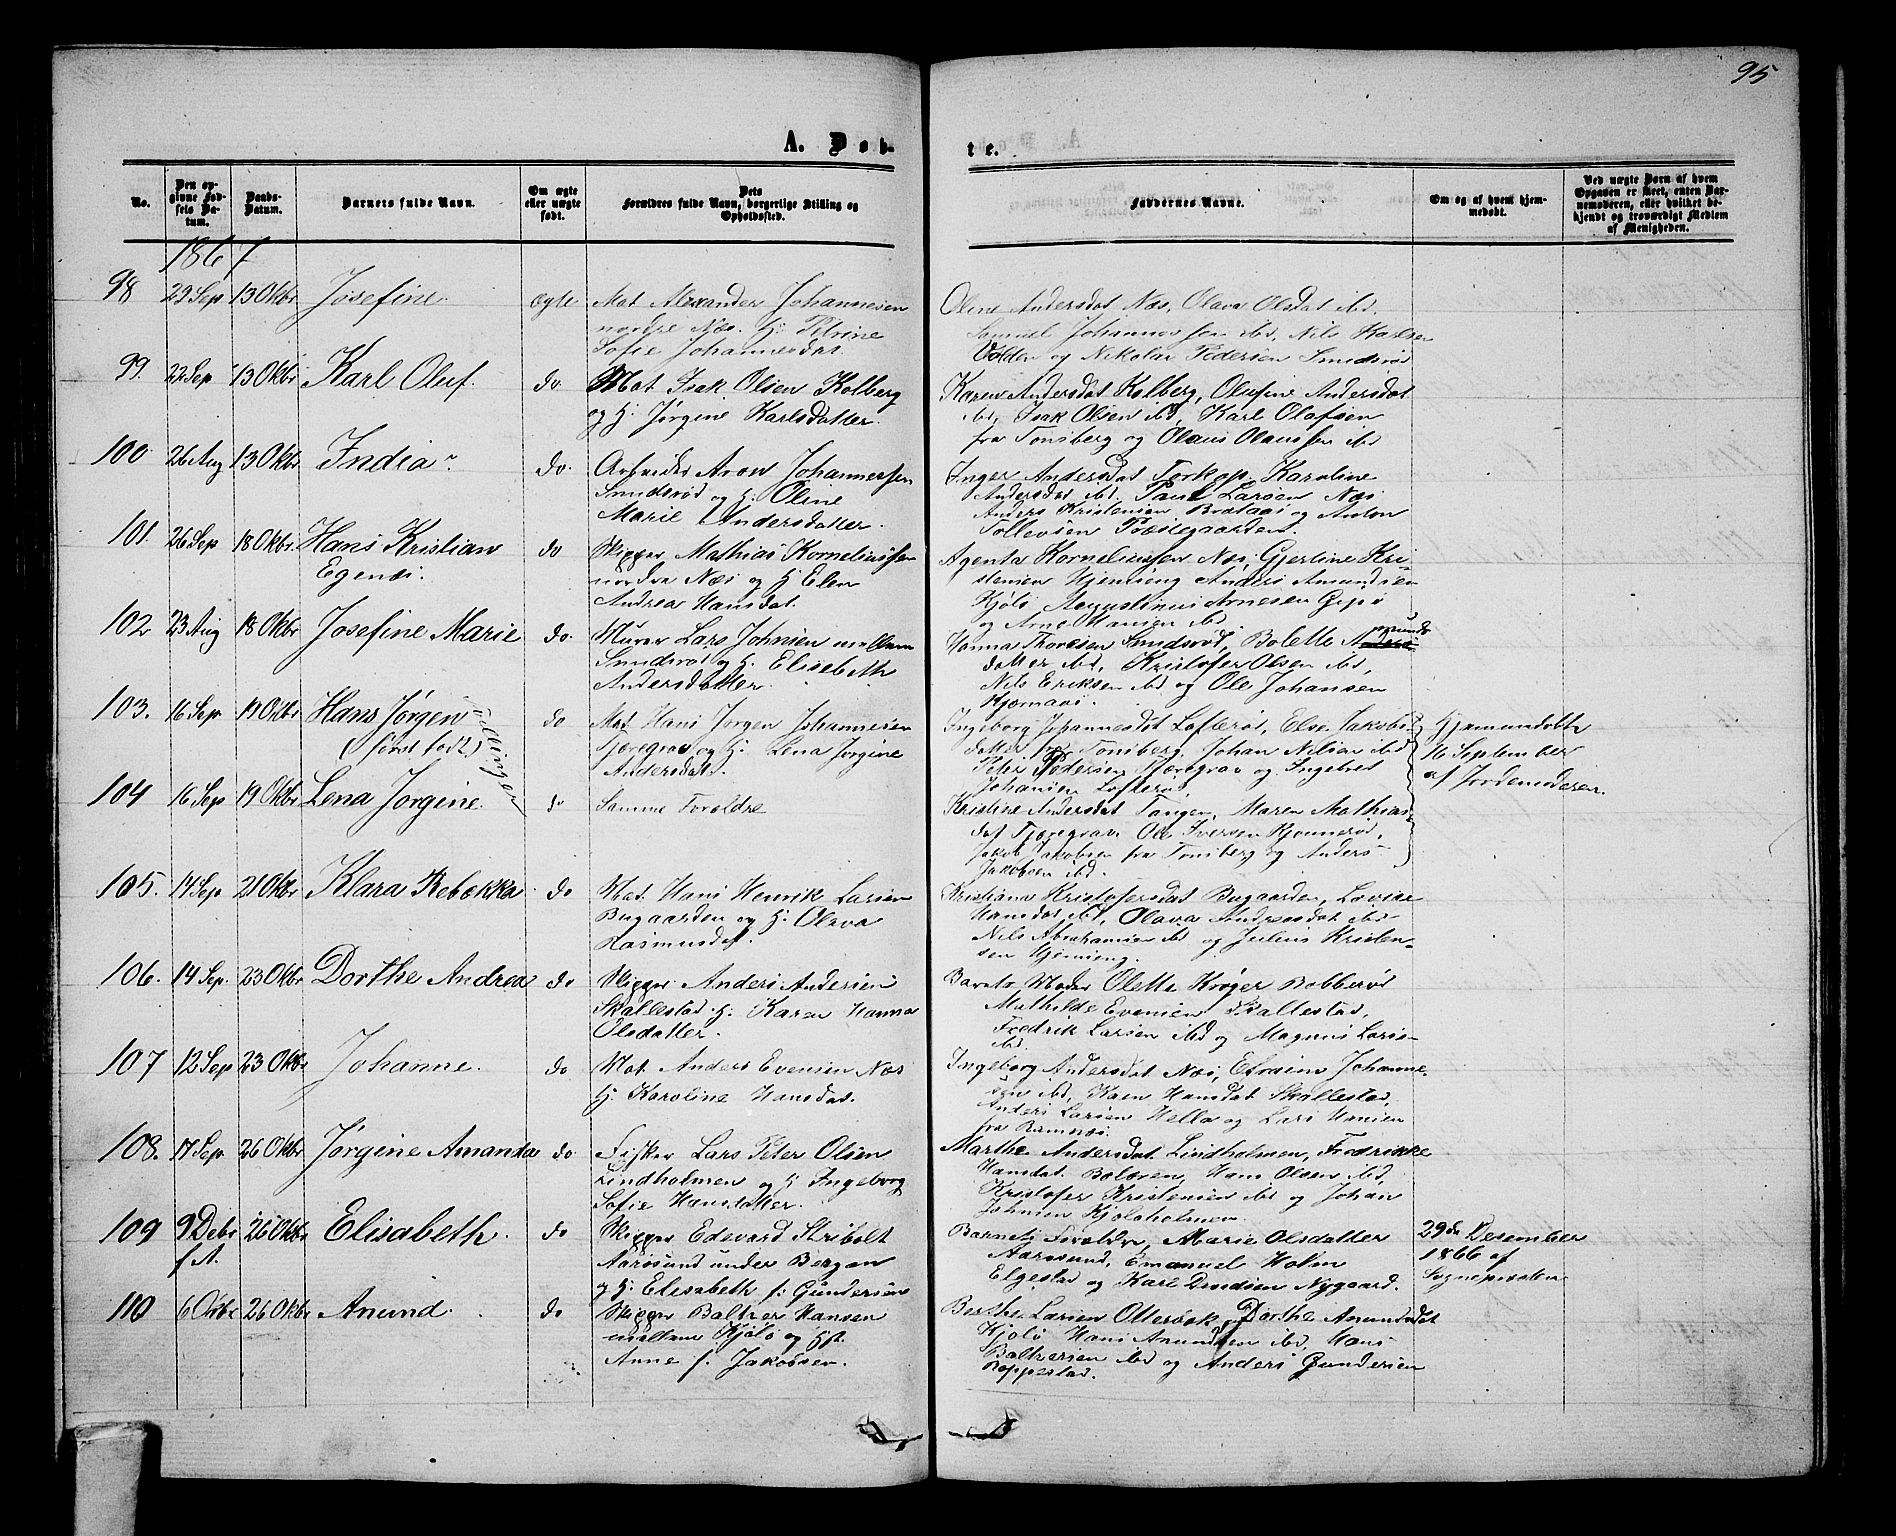 95
A. Døb-
te.
No.
Den op-
givne Fød-
sels Da-
tum.
Daabs-
Datum.
Barnets fulde Navn.
Om ægte
eller uægte
født.
Dets
Forældres fulde Navn, borgerlige Stilling og
Opholdssted.
Faddernes Navne.
Om og af hvem hjem-
medøbt.
Ved uægte Børn af hvem
Opgaven er skeet, enten Bar-
nemoderen, eller hvilket be-
kjendt og troværdigt Medlem
af Menigheden.
1867
98 29 Sep 13 Oktbr Josefine. ægte Mat Alexander Johannesen
nordre Næs. H: Petrine
Sofie Johannesdat.
Oline Andersdat Næs, Olava Olsdat ibd.
Samuel Johannessen ibd, Nils Karlsen
Volden og Nikolai Pedersen Smidsrød
99. 22 Sep 13 Oktbr Karl Oluf. do. Mat Isak Olsen Kolberg
og H: Jørgine Karlsdatter.
Karen Andersdat Kolberg, Olufine Andersdat
ibd, Isak Olsen ibd, Karl Olafsen
fra Tønsberg og Olaus Olaussen ibd
100. 26 Aug 13 Oktbr India. do. Arbeider Aron Johannessen
Smidsrød og H: Oline
Marie Andersdatter.
Inger Andersdat Torkop, Karoline
Andersdat ibd, Paul Larsen Næs
Anders Kristensen Brataas og Anton
Tollevsen Præstegaarden.
101. 26 Sep 18 Oktbr. Hans Kristian
Egenæs. do Skipper Mathias Korneliussen
nordre Næs og H Elen
Andrea Hansdat.
Agente Korneliussen Næs, Gjertine Kri-
stensen Hjemseng Anders Amundsen
Kjøle Augustinus Arnesen Gipø
og Arne Hansen ibd
102 23 Aug 18 Oktbr Josefine Marie do. Murer Lars Johnsen mellem
Smidsrød og H: Elisabeth
Andersdatter.
Hanna Thoresen Smidsrød, Bolette Amunds
datter ibd, Kristofer Olsen ibd,
Nils Eriksen ibd og Ole Johansen
Kjærnaas.
103. 16 Sep. 19 Oktbr Hans Jørgen
(først født) Tvillinger do Mat. Hans Jørgen Johannesen
Tjøregrav og H: Lena Jørgine
Andersdat.
Ingeborg Johannesdat Lofterød, Else Jakobs-
datter fra Tønsberg. Johan Nilsen ibd
Peter Pedersen Tjøregrav og Ingebret
Johansen Lofterød.
Hjemmedøbte
16 September
af Jordemoderen.
104 16 Sep 19 Oktbr Lena Jørgine. do Samme Forældre
Kristine Andersdat Tangen, Maren Mathias-
dat Tjøregrav, Ole Iversen Rjonnerød,
Jakob Jakobsen fra Tønsberg og Anders
Jakobsen ibd.
105. 14 Sep 21 Oktbr Klara Rebekka do Mat. Hans Henrik Larsen
Bugaarden og H: Olava
Rasmusdat.
Kristiana Kristofersdat Bugaarden, Lovise
Hansdat ibd, Olava Andreasdat ibd
Nils Abrahamsen ibd og Julius Kristen-
sen Hjemseng.
106. 14 Sep. 23 Oktbr Dorthe Andrea do Skipper Anders Andersen
Skallestad H: Karen Hanna
Olsdatter.
Barnets Moder Olette Krøger Bobberød
Mathilde Evensen Skallestad,
Fredrik Larsen ibd og Magnus Larsen
ibd.
107 12 Sep 23 Oktbr Johanne. do Mat. Anders Evensen Næs
H: Karoline Hansdat.
Ingeborg Andersdat Næs, Efraim Johanne-
sen ibd, Karen Hansdat Skallestad,
Anders Larsen Hella og Lars Hansen
fra Ramnæs.
108. 17 Sep. 26 Oktbr Jørgine Amanda do. Fisker Lars Peter Olsen
Lindholmen og H Ingeborg
Sofie Hansdatter.
Marthe Andersdat Lindholmen, Fredrikke
Hansdat Bolæren, Hans Olsen ibd,
Kristofer Kristensen ibd og Johan
Johnsen Kjøløholmen.
109 9 Debr
f. A. 26 Oktbr Elisabeth. do Skipper Edevard Stribolt
Aarøsund under Bergan
og H: Elisabeth f: Gundersen
Barnets Forældre, Marie Olsdatter
Aarøsund, Emanuel Holm
Elgestad og Karl Nygaard.
29de Desember
1866 af
Sognepresten
110 6 Oktbr 26 Oktbr Anund. do Skipper Baltzer Hansen
mellem Kjøle og H:
Anne f. Jakobsen.
Berthe Larsen Otterbæk, Dorthe Anundsdat
Kjøle Hans Anundsen ibd, Hans
Baltzersen ibd og Anders Gundersen
Roppestad.